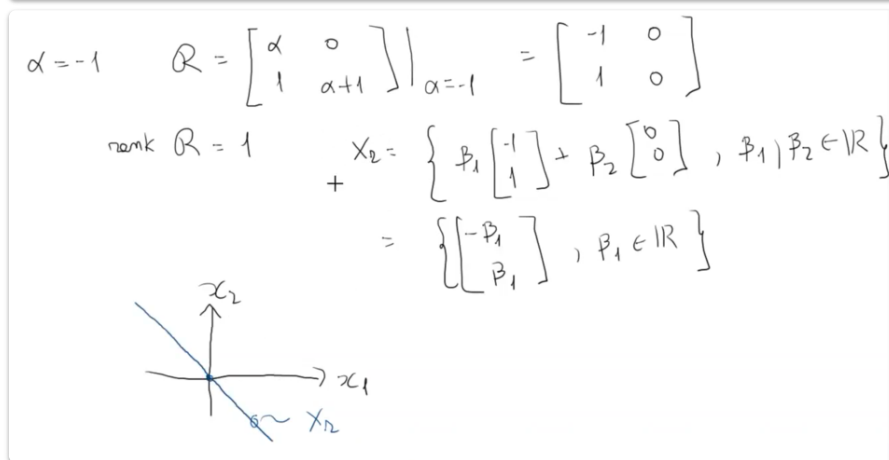 α = -1 R = [α 0; 1 α+1]|α=-1 = [-1 0; 1 0]
rank R = 1 X₂ = { β₁ [-1; 1] + β₂ [0; 0] , β₁, β₂ ∈ ℝ }
+
= { [-β₁; β₁] , β₁ ∈ ℝ }
x₂
x₁
X₂